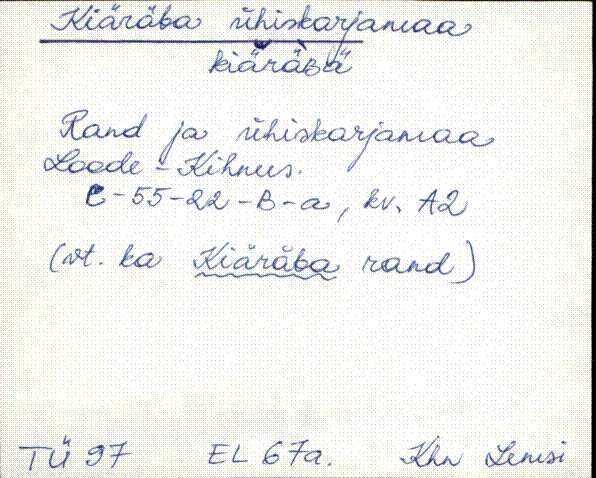 Kiäräba ühiskarjamaa
kiäräbä
Rand ja ühiskarjamaa
Loode-Kihnus.
C-55-22-B-a, kv. A2
(vt. ka Kiäräba rand)
TÜ 97 EL 67a. Khn Lemsi